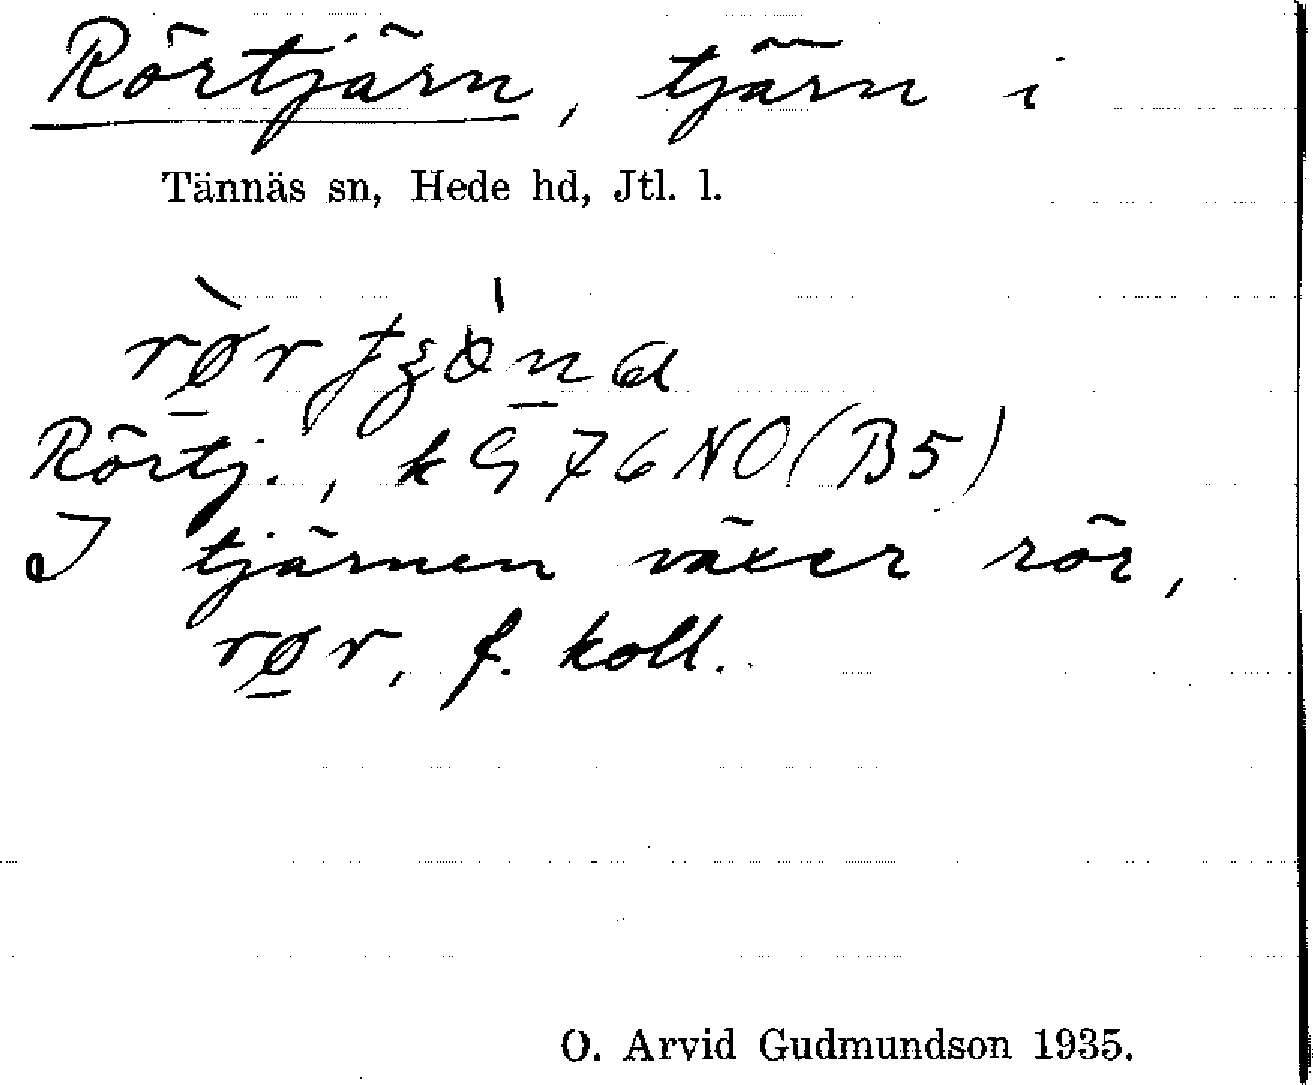 Rörtjärn, tjärn i
Tännäs sn, Hede hd, Jtl. l.
Rörtj., kG 76 NO (B5)
I tjärnen växer rör,
rør, f. koll.
O. Arvid Gudmundson 1935.